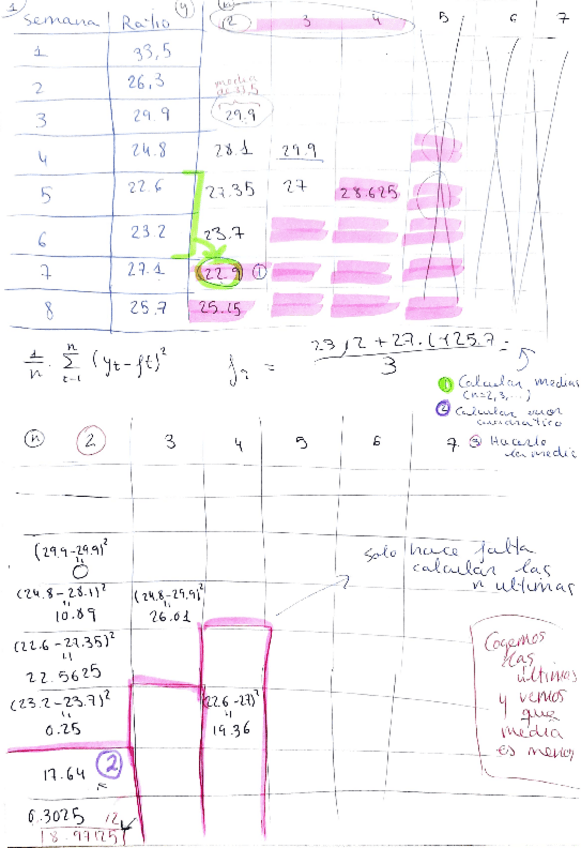 1
Semana Ratio (y) (n) 2 3 4 5 6 7
1 33,5
2 26,3
media
3 29.9 29.9
4 24.8 28.1 29.9
5 22.6 27.35 27 28.625
6 23.2 23.7
7 27.1 22.9 ①
8 25.7 25.15
1/n · Σ t=1 n (yt - ft)²
23,2 + 27.1 + 25.7 / 3 =
① Calcular medias
(n=2,3,...)
② Calcular error
cuadratico
③ Hacerlo
la media
(n) 2 3 4 5 6 7
(29.9-29.9)²
"
0
(24.8-28.1)² (24.8-29.9)²
" "
10.89 26.01
(22.6-27.35)²
"
22.5625
(23.2-23.7)² (22.6-27)²
" "
0.25 19.36
17.64 ②
0.3025
18.97125
solo hace falta
calcular las
n ultimas
Cogemos
las
últimas
y vemos
que
media
es menor